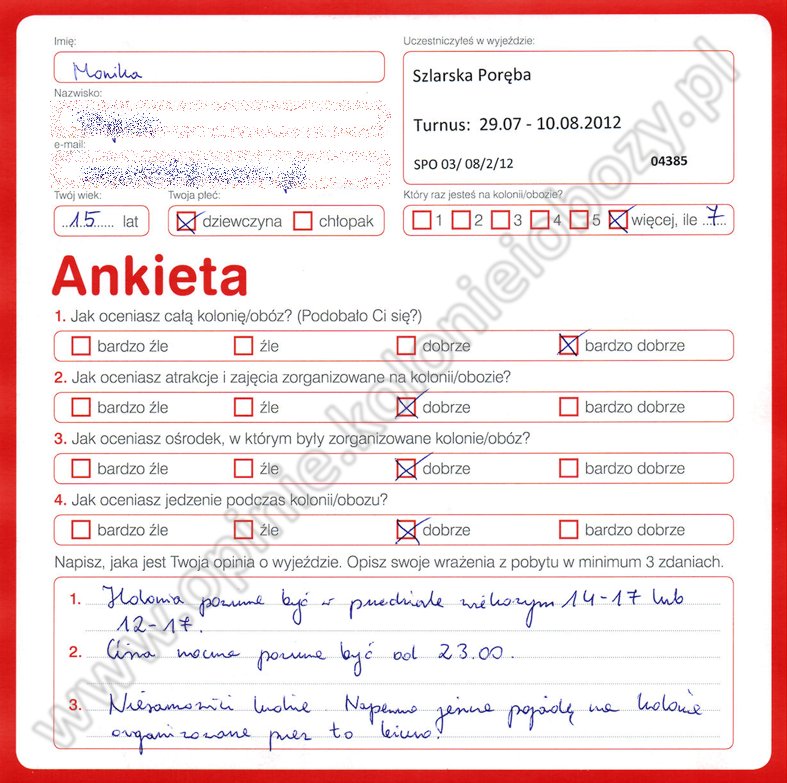 Imię:
Uczestniczyłeś w wyjeździe:
Monika
Szlarska Poręba
Nazwisko:
Turnus: 29.07 - 10.08.2012
e-mail:
SPO 03/ 08/2/12 04385
Twój wiek:
Twoja płeć:
Który raz jesteś na kolonii/obozie?
15 lat
dziewczyna chłopak
1 2 3 4 5 więcej, ile 7
Ankieta
1. Jak oceniasz całą kolonię/obóz? (Podobało Ci się?)
bardzo źle źle dobrze bardzo dobrze
2. Jak oceniasz atrakcje i zajęcia zorganizowane na kolonii/obozie?
bardzo źle źle dobrze bardzo dobrze
3. Jak oceniasz ośrodek, w którym byly zorganizowane kolonie/obóz?
bardzo źle źle dobrze bardzo dobrze
4. Jak oceniasz jedzenie podczas kolonii/obozu?
bardzo źle źle dobrze bardzo dobrze
Napisz, jaka jest Twoja opinia o wyjeździe. Opisz swoje wrażenia z pobytu w minimum 3 zdaniach.
1. Kolonia powinna być w przedziale wiekowym 14-17 lub
12-17.
2. Cisza nocna powinna być od 23.00.
3. Niesamowici ludzie. Napewno jeszcze pojadę na kolonie
organizowane przez to biuro.
www.opinie.kolonieiobozy.pl